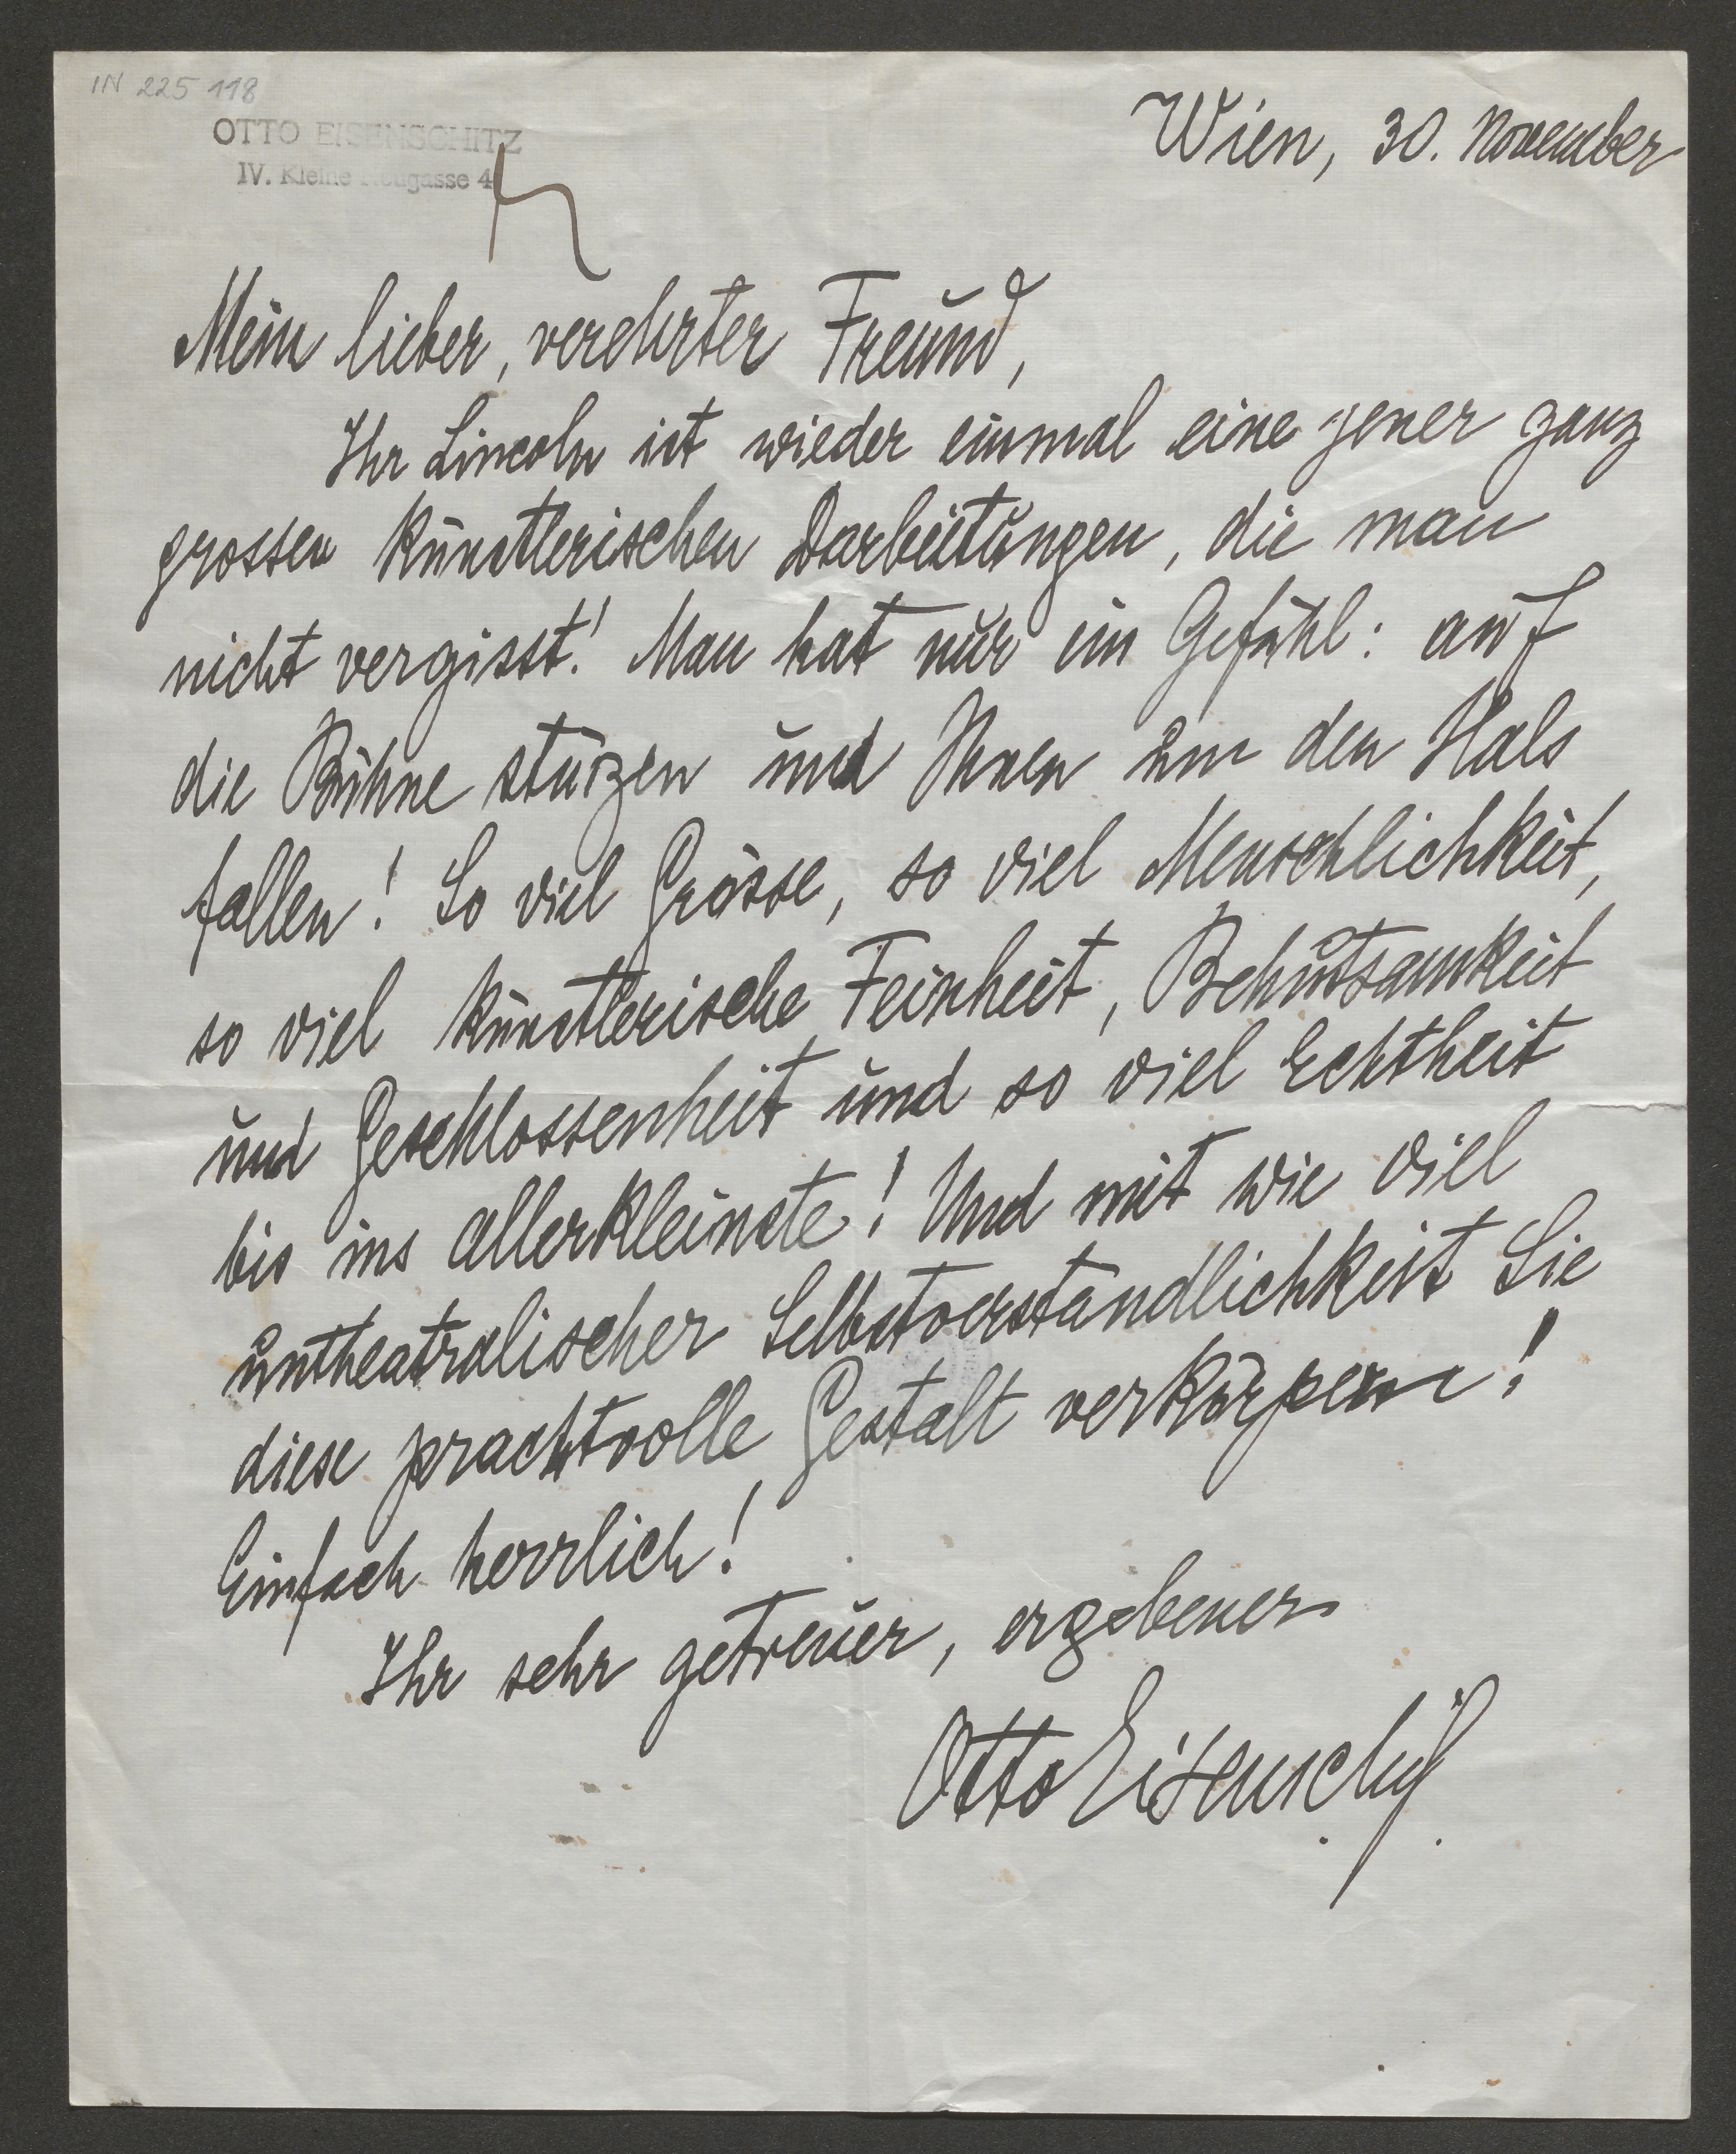 IN 225 118
OTTO EISENSCHITZ
IV. Kleine Neugasse 4
Wien, 30. November
Mein lieber, verehrter Freund,
Ihr Lincoln ist wieder einmal eine jener ganz
grossen künstlerischen Darbietungen, die man
nicht vergisst! Man hat nur ein Gefühl: auf
die Bühne stürzen und Ihnen um den Hals
fallen! So viel Grösse, so viel Menschlichkeit,
so viel künstlerische Feinheit, Behutsamkeit
und Geschlossenheit und so viel Echtheit
bis ins allerkleinste! Und mit wie viel
untheatralischer Selbstverständlichkeit Sie
diese prachtvolle Gestalt verkörpern!
Einfach herrlich!
Ihr sehr getreuer, ergebener
Otto Eisenschitz